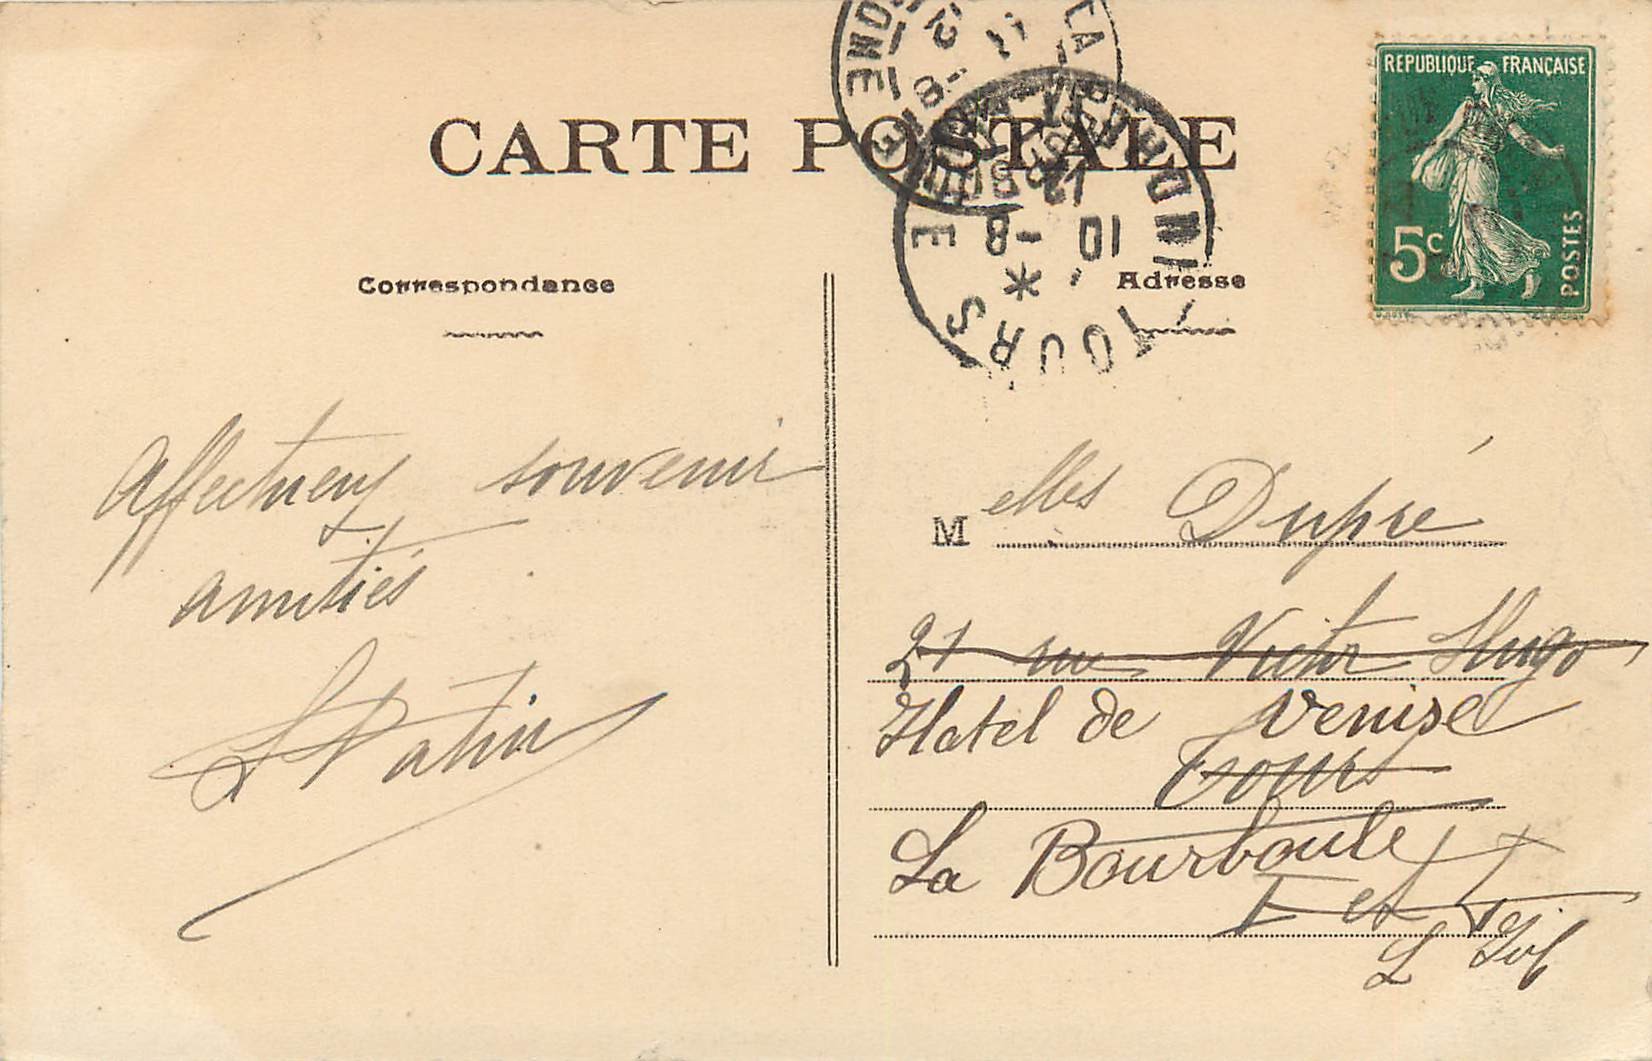 CARTE POSTALE
REPUBLIQUE FRANÇAISE
5c
POSTES
LA
TOURS
10 -8
12
Correspondance
Adresse
Affectueux souvenir
+
amitiés
Melles Dupré
21 rue Victor Hugo
Hotel de Venise
Tours
La Bourboule
I et L